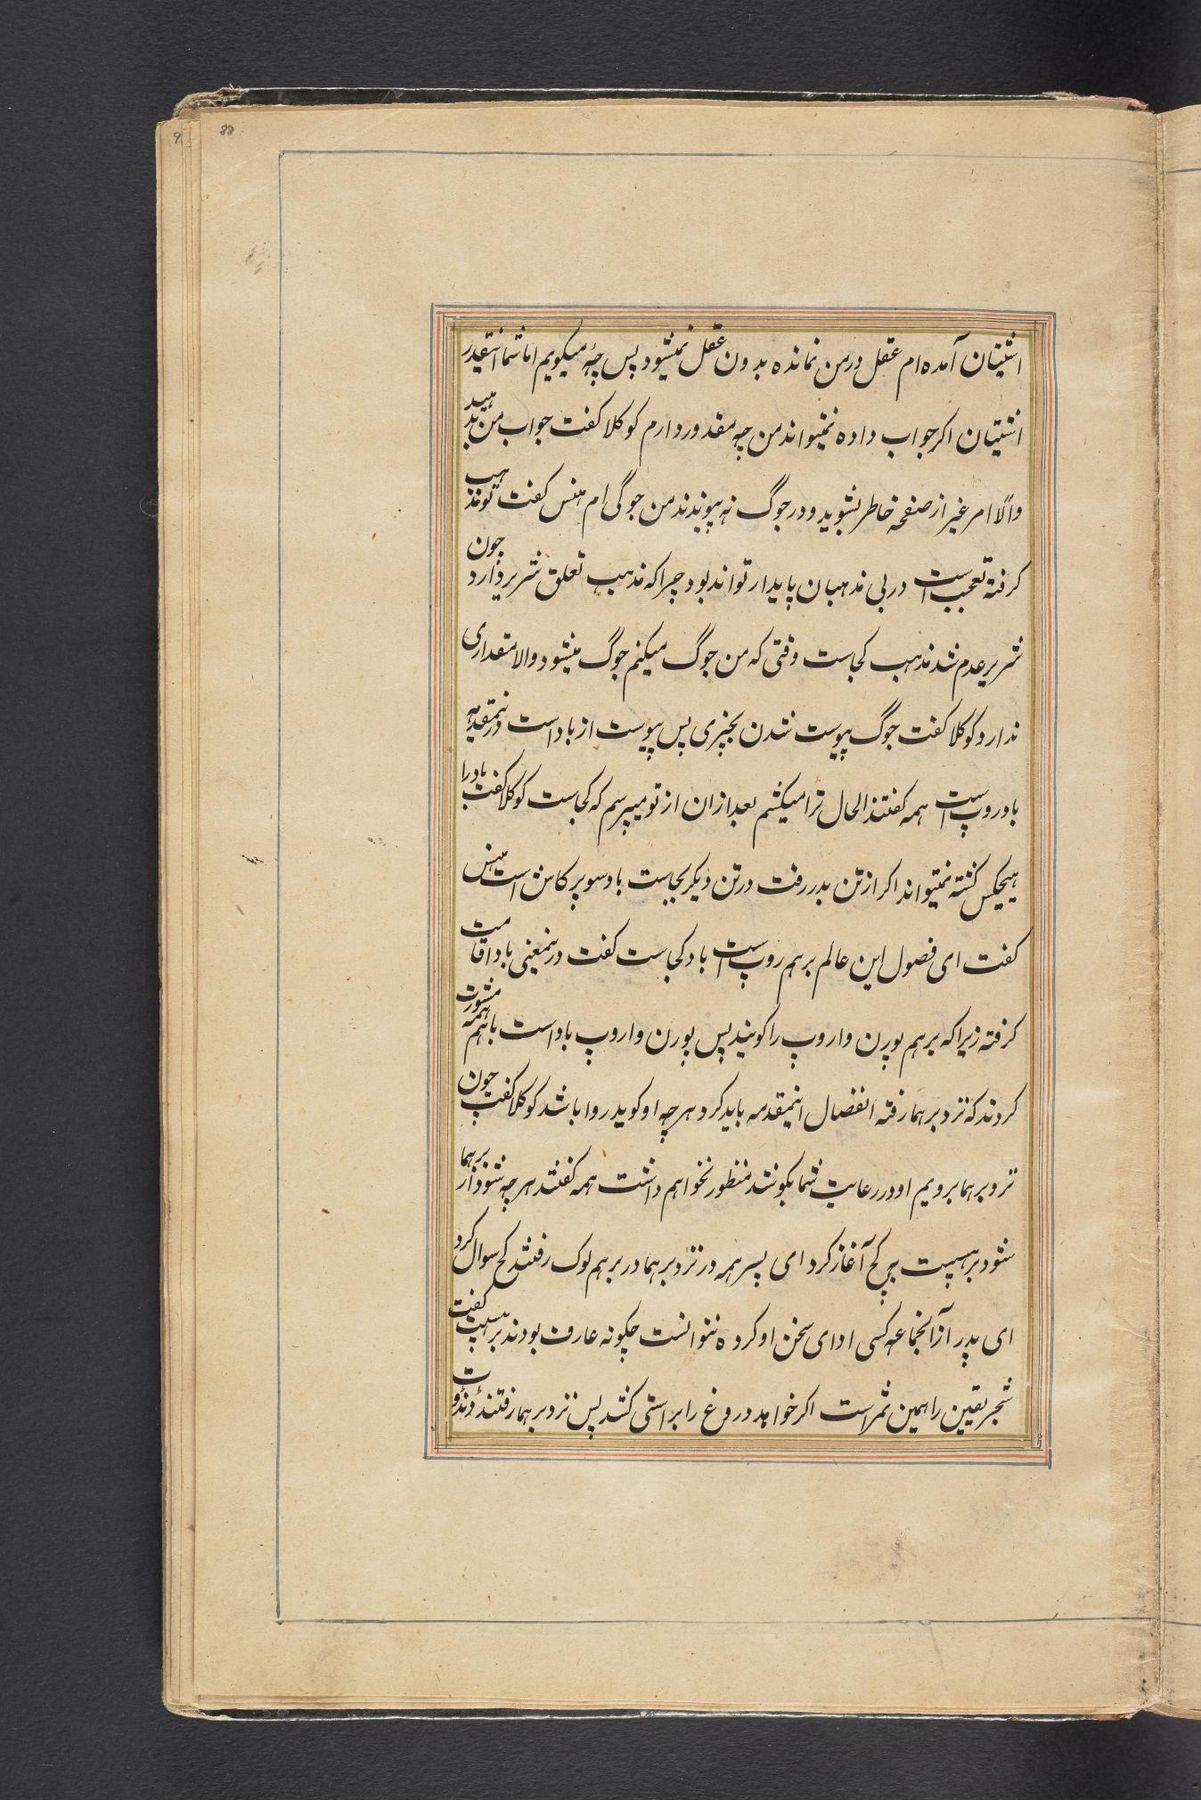 88
9
اشتیان آمده‌ام عقل در من نمانده بدون عقل نمیشود پس چه میکویم اما شما اینقدر
اشتیان اکر جواب داده نمیتواند من چه مقدور دارم کوکلا کفت جواب من بدهید
والا امر غیر از صفحه خاطر بشوید و در جوک نه پیوندند من جوکی ام هنس کفت تو مذهب
کرفته تعجب است در بی مذهبان پایدار تواند بود چرا که مذهب تعلق شریر دارد جون
شریر عدم شد مذهب کجاست وقتی که من جوک میکنم جوک میشود والا مقداری
ندارد کوکلا کفت جوک پیوست شدن بچیزی پس پیوست از باد است درینمقدمه
باد روپ است همه کفتند الحال ترا میکشم بعد از ان از تو میپرسم که کجاست کوکلا کفت باد را
هیچکس کشته نمیتواند اکر از تن بدر رفت در تن دیکر بجاست باد سوپرکاس است هنس
کفت ای فصول این عالم برهم روپ است باد کجاست کفت درینمعنی باد اقامت
کرفته زیرا که برهم پورن واروپ را کویند پس پورن واروپ باد است باهم همه مشورت
کردند که نزد برهما رفته انفصال اینمقدمه باید کرد هرچه او کوید روا باشد کوکلا کفت جون
نزد برهما برویم او در رعایت شما بکوشد منظور نخواهم داشت همه کفتند هرچه شود از برهما
شود برهسپت بر کچ آغاز کرد ای پسر همه در نزد برهما در برهم لوک رفتند کچ سوال کرد
ای پدر از آنجماعه کسی ادای سخن او کرده نتوانست چکونه عارف بودند برهسپت کفت
شجر یقین را همین ثمر است اکر خواهد دروغ را براستی کشد پس نزد برهما رفتند